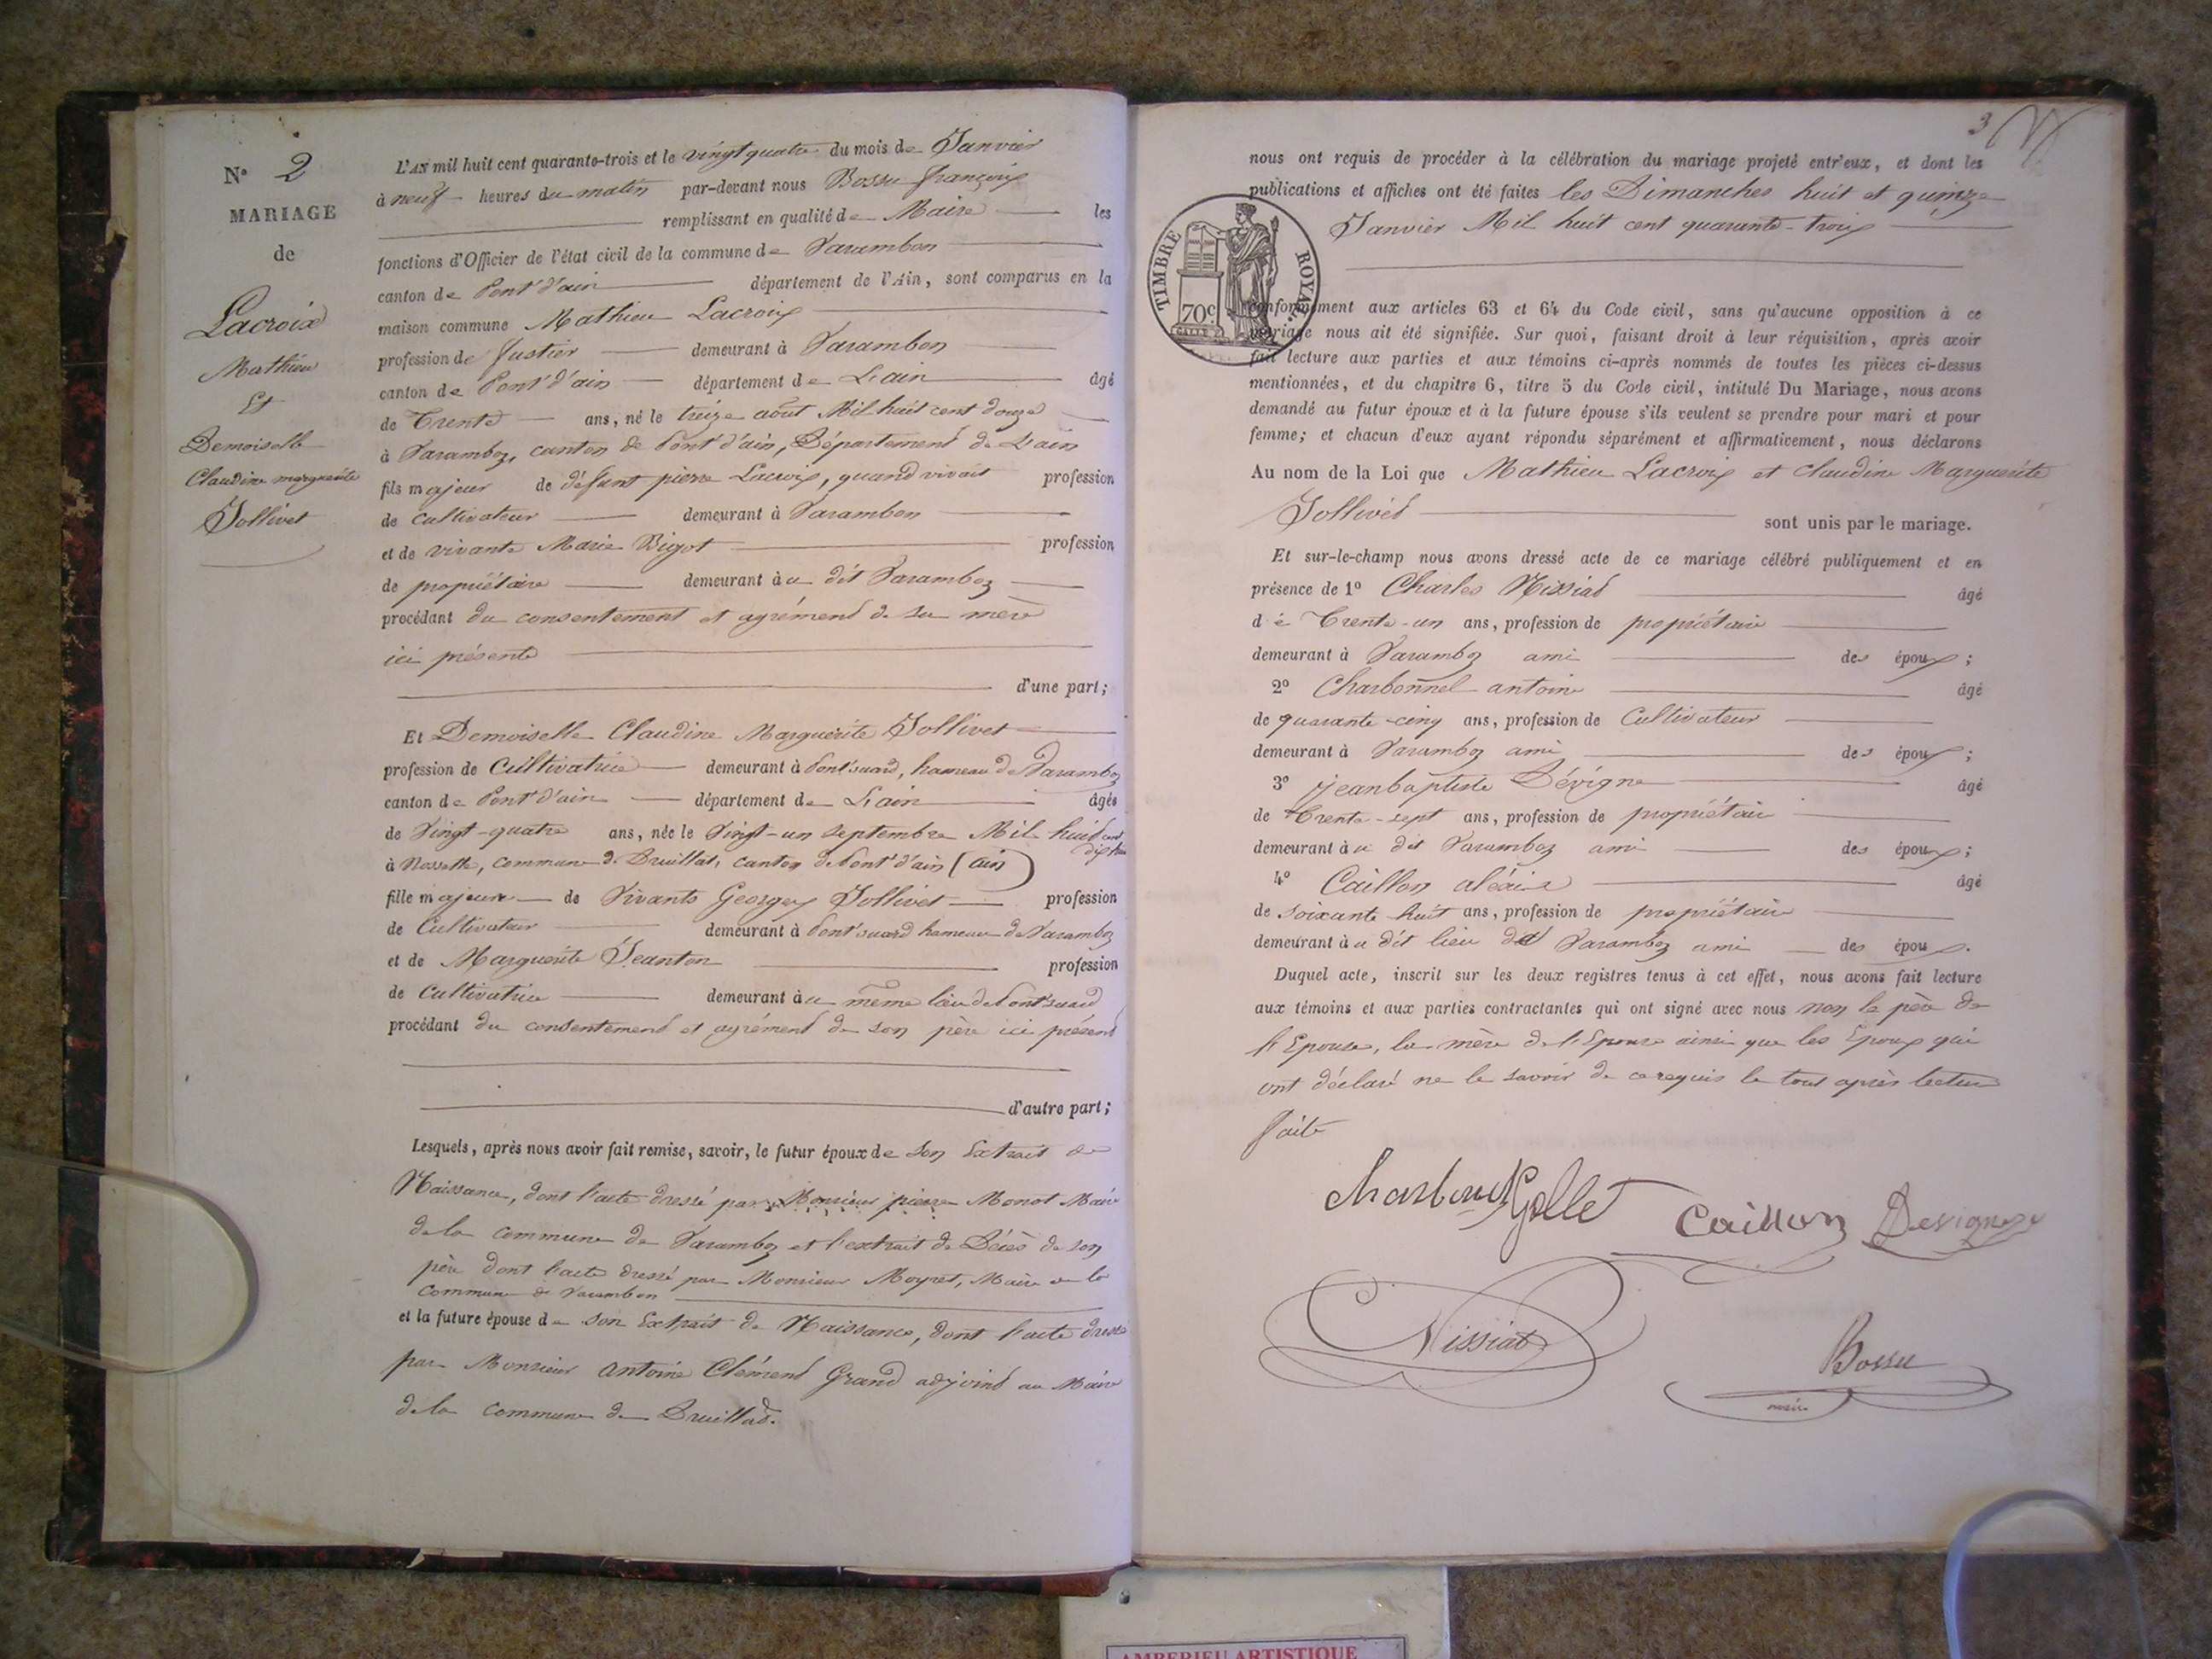 N° 2
MARIAGE
de
Lacroix
Mathieu
Et
Demoiselle
Claudine marguerite
Jollivet
L'AN mil huit cent quarante-trois et le vingt quatre du mois de Janvier
à neuf heures du matin par-devant nous Bossu françois
remplissant en qualité de Maire les
fonctions d'Officier de l'état civil de la commune de Varambon
canton de Pont d'ain département de l'Ain, sont comparus en la
maison commune Mathieu Lacroix
profession de fustier demeurant à Varambon
canton de Pont d'ain département de L'ain âgé
de Trente ans, né le treize août Mil huit cent douze
à Varamboz, canton de Pont d'ain, Département de L'ain
fils majeur de défunt pierre Lacroix, quand vivait profession
de cultivateur demeurant à Varambon
et de vivante Marie Bigot profession
de propriétaire demeurant àu dit Varamboz
procédant du consentement et agrément de sa mère
ici présente
d'une part;
Et Demoiselle Claudine Marguerite Jollivet
profession de Cultivatrice demeurant à Pont'suard, hameau de Varamboz
canton de Pont d'ain département de L'ain âgée
de Vingt-quatre ans, née le Vingt-un septembre Mil huit cent dix huit
à commune de Druillat, canton de Pont d'ain (ain)
fille majeure de Vivants Georges Jollivet profession
de Cultivateur demeurant à Pont'suard hameau de Varamboz
et de Marguerite Jeanton profession
de Cultivatrice demeurant àu même lieu de Pont'suard
procédant du consentement et agrément de son père ici présent
d'autre part;
Lesquels, après nous avoir fait remise, savoir, le futur époux de son Extrait de
Naissance, dont l'acte dressé par Monsieur pierre Monot Maire
de la commune de Varamboz et l'extrait de Décès de son
père dont l'acte dressé par Monsieur Moyret, Maire de la
Commune de Varambon
et la future épouse de son Extrait de Naissance, dont l'acte dressé
par Monsieur antoine Clément Grand adjoint au Maire
de la commune de Druillat.
3
nous ont requis de procéder à la célébration du mariage projeté entr'eux, et dont les
publications et affiches ont été faites les Dimanches huit et quinze
Janvier Mil huit cent quarante-trois
TIMBRE ROYAL
70c
conformément aux articles 63 et 64 du Code civil, sans qu'aucune opposition à ce
mariage nous ait été signifiée. Sur quoi, faisant droit à leur réquisition, après avoir
fait lecture aux parties et aux témoins ci-après nommés de toutes les pièces ci-dessus
mentionnées, et du chapitre 6, titre 5 du Code civil, intitulé Du Mariage, nous avons
demandé au futur époux et à la future épouse s'ils veulent se prendre pour mari et pour
femme; et chacun d'eux ayant répondu séparément et affirmativement, nous déclarons
Au nom de la Loi que Mathieu Lacroix et Claudine Marguerite
Jollivet sont unis par le mariage.
Et sur-le-champ nous avons dressé acte de ce mariage célébré publiquement et en
présence de 1° Charles Nissiat âgé
de Trente-un ans, profession de propriétaire
demeurant à Varamboz ami des époux;
2° Charbonnel antoine âgé
de quarante-cinq ans, profession de Cultivateur
demeurant à Varamboz ami des époux;
3° jeanbaptiste Dévigne âgé
de Trente-sept ans, profession de propriétaire
demeurant àu dit Varamboz ami des époux;
4° Caillon aléxis âgé
de soixante huit ans, profession de propriétaire
demeurant àu dit lieu de Varamboz ami des époux.
Duquel acte, inscrit sur les deux registres tenus à cet effet, nous avons fait lecture
aux témoins et aux parties contractantes qui ont signé avec nous non le père de
l'Epouse, la mère de l'Epouse ainsi que les Epoux qui
ont déclaré ne le savoir de ce requis le tout après lecture
faite
Charbonel Gollet Caillon Devigne
Nissiat
Bossu
maire
AMBERIEU ARTISTIQUE